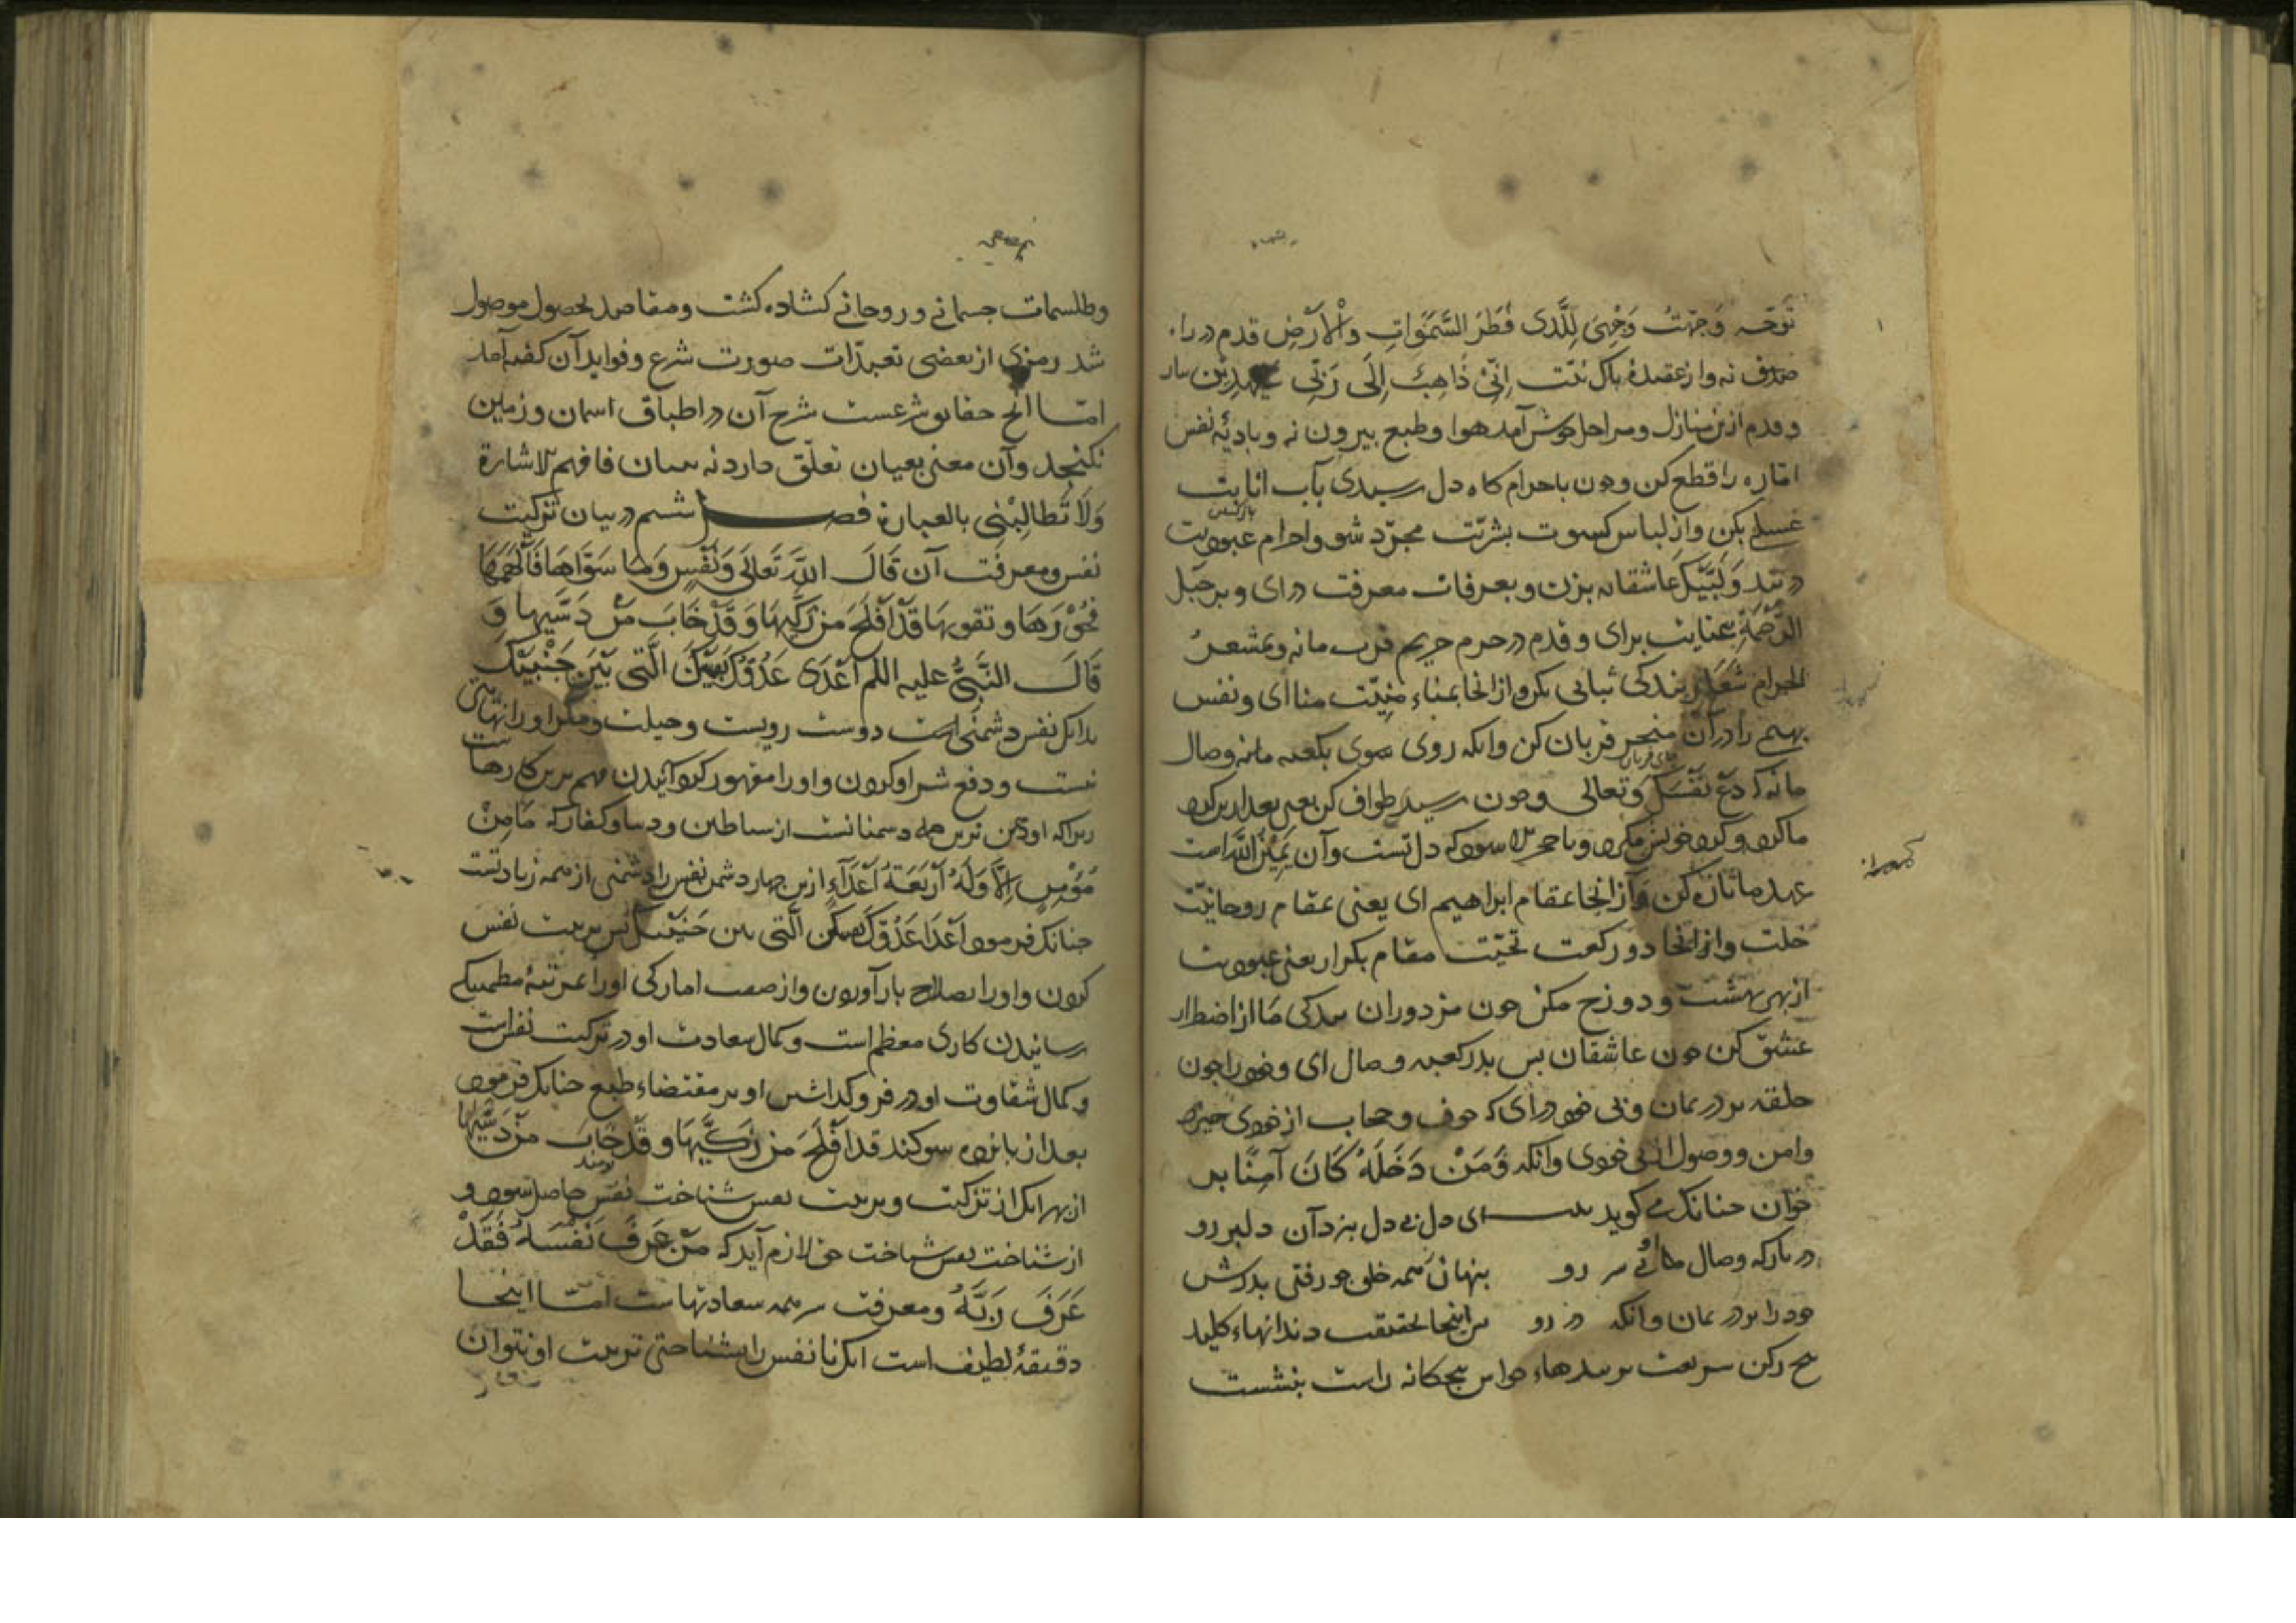 توجه وَجَّهْتُ وَجْهِيَ لِلَّذی فَطَرَ السَّمَوَاتِ وَالْأَرْضَ قدم در راه
صدق نه و از عقیدۀ پاک نیت إِنِّی ذَاهِبٌ إِلَى رَبِّی سَیَهْدِیْنِ
و قدم ازین منازل و مراحل خوش آمد هوا و طبع بیرون نه و بادیۀ نفس
اماره را قطع کن و چون باحرام کاه دل رسیدی بآب انابت
غسلی بکن و از لباس کسوت بشریت مجرد شو و احرام عبودیت
در بند و لَبَّیْکَ عاشقانه بزن و بعرفات معرفت درای و بر جبل
الرَّحْمَةِ عنایت برای و قدم در حرم حریم قرب ما نه و بمشعر
الحرام شعار بندکی ثباتی بکن و از انجا بمناء منیت منا ای و نفس
بهیم را در آن منحر قربان کن وانکه روی سوی بکعبه ما نه وصال
ما نه که دَعْ نَفْسَکَ وَتعالی و چون رسید طواف کن یعنی بعد ازین کرد
ما کرد و کرد خویش مکرد و با حجر الاسود که دل تست و آن یَمِیْنُ اللَّهِ است
عهد ما تازه کن و از انجا بمقام ابراهیم ای یعنی بمقام روحانیت
خلت و از انجا دو رکعت تحیت مقام بکزار یعنی عبودیت
از بهر بهشت و دوزخ مکن چون مزدوران بندکی ما از اضطرار
عشق کن چون عاشقان پس بدر کعبه وصال ای و خود را چون
حلقه بر در بمان و بی خود درای که خوف و حجاب از خودی خیزد
و امن و وصول از بی خودی وانکه وَمَنْ دَخَلَهُ كَانَ آمِنًا بر
خوان چنانک می کوید بیت ای دل بی دل بنزد آن دلبر رو
در بارکه وصال ما بی سر رو پنهان ز همه خلق چو رفتی بدرش
خود را بر در بمان وانکه در رو پس اینجا بحقیقت دندانهاء کلید
پنج رکن شریعت بر بندهاء حواس پنجکانه راست بنشست
وطلسمات جسمانی و روحانی کشاده کشت و مقاصد بحصول موصول
شد رمزی از بعضی تعبدات صورت شرع و فواید آن کفته آمد
امّا انچ حقایق شرعست شرح آن در اطباق اسمان و زمین
نکنجد و آن معنی بعیان تعلق دارد نه ببیان فافهم بالاشارة
وَلَا تُطَالِبْنِی بالعبارة فصل ششم در بیان تزکیت
نفس و معرفت آن قَالَ اللَّهُ تَعَالَى وَنَفْسٍ وَمَا سَوَّاهَا فَأَلْهَمَهَا
فُجُوْرَهَا و تقویها قَدْ أَفْلَحَ مَنْ زَكَّیهَا وَقَدْ خَابَ مَنْ دَسَّیها وَ
قَالَ النَّبِیُّ علیه اللم أَعْدَى عَدُوِّكَ نَفْسُكَ الَّتِی بَیْنَ جَنْبَیْكَ
بدانک نفس دشمنی است دوست رویست و حیلت و مکر او را نهایتی
نیست و دفع شر او کردن و او را مقهور کردانیدن مهم ترین کارهاست
زیرا که او دشمن ترین جمله دشمنانست از شیاطین و دنیا و کفار که مَا مِنْ
مُؤْمِنٍ إِلَّا وَلَهُ أَرْبَعَةُ أَعْدَآءٍ ازین چهار دشمن نفس را دشمنی از همه زیادتست
چنانک فرمود اَعْدَا عَدُوِّكَ نفسک الَّتِی بین جنبیک پس تربیت نفس
کردن و او را بصلاح باز آوردن و از صفت امارکی او را بمرتبۀ مطمینکی
رسانیدن کاری معظم است و کمال سعادت او در تزکیت نفس است
و کمال شقاوت او در فرو کذاشتن او بر مقتضاء طبع چنانک فرمود
بعد از یازده سوکند قد أَفْلَحَ مَنْ زَكَّیهَا وَقَدْ خَابَ مَنْ دَسَّیهَا
از بهر آنک از تزکیت و تربیت نفس شناخت نفس حاصل شود و
از شناخت نفس شناخت حق لازم آید که مَنْ عَرَفَ نَفْسَهُ فَقَدْ
عَرَفَ رَبَّهُ و معرفت سر همه سعادتهاست امّا اینجا
دقیقۀ لطیف است انک تا نفس را نشناختی تربیت او نتوان